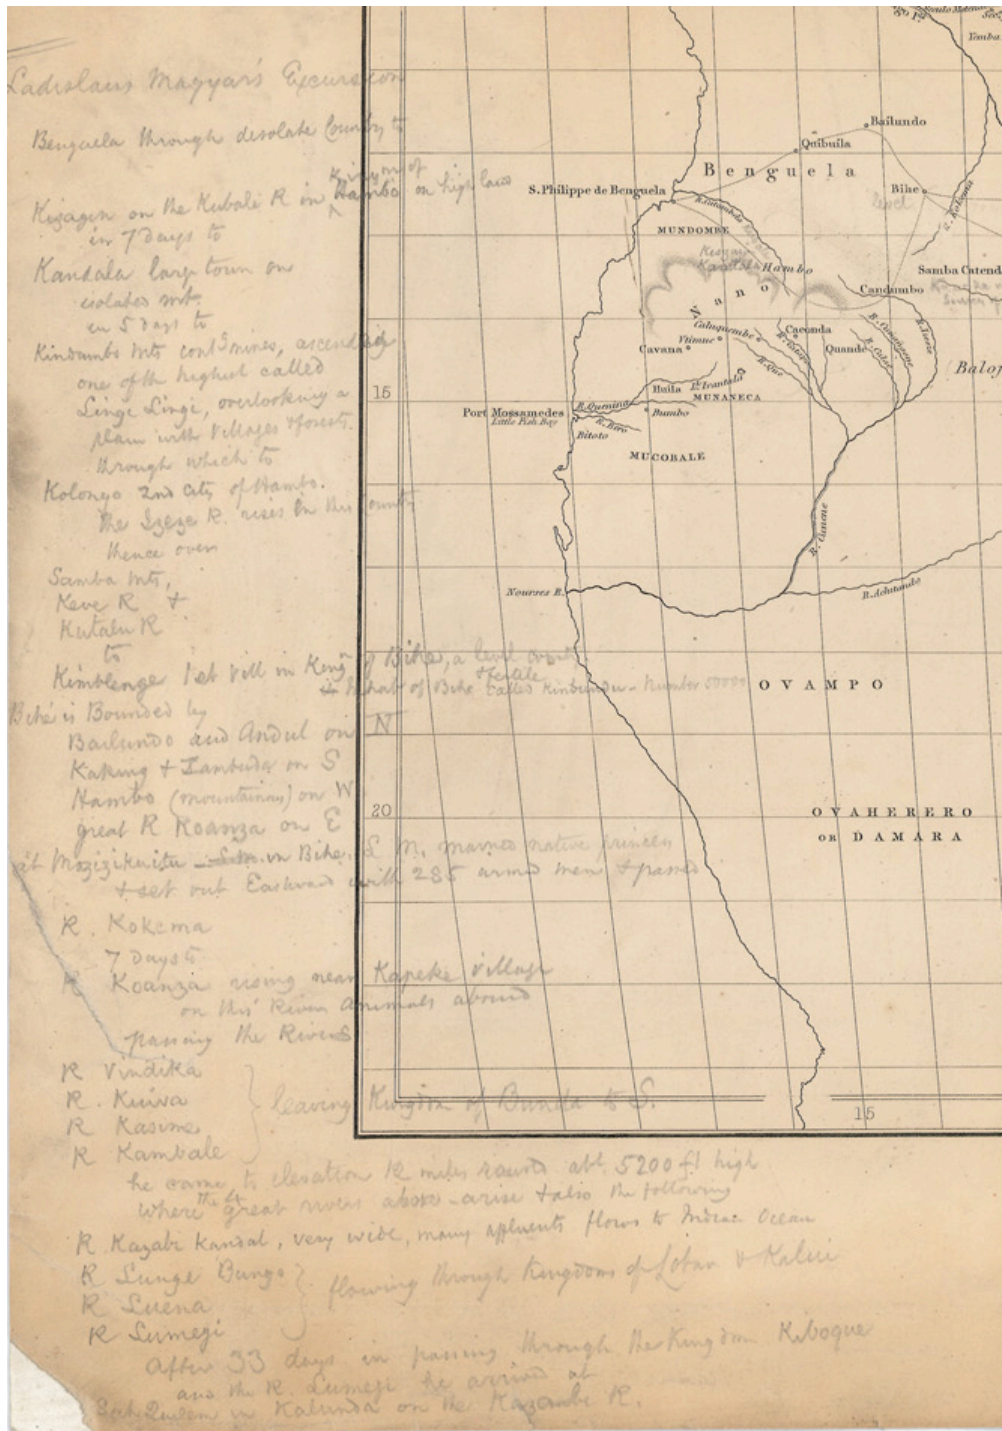 Ladislaus Magyar's Excursion
Benguela through desolate Country to
Kingm of
Kizagin on the Kubali R in Hambo on high land
in 7 days to
Kandala large town on
isolated mt.
in 5 days to
Kindumbo Mts contg mines, ascending
one of the highest called
Lingi Lingi, overlooking a
plain with villages & forests.
through which to
Kolongo 2nd city of Hambo.
the Izeze R. rises in this Country
thence over
Samba Mts,
Keve R &
Kutalu R
to
Kimblenge 1st vill in Kingm of Bihe, a level country
& fertile
Inhabt of Bihe called Kinbundu - Number 50000
Bihe is Bounded by
Bailundo and Andul on N
Kaking & Zambuda on S
Hambo (mountainous) on W
great R Koanza on E
at Mazizikuitu in Bihe. L M. married native princess
& set out Eastward with 285 armed men & passed
R. Kokema
7 Days to
R Koanza rising near Kapeke village
on this River animals abound
passing the Rivers
R Vindika
R. Kuiva
R Kasime
R Kambale
leaving Kingdom of Bunda to S.
he came to elevation 12 miles round abt. 5200 ft high
where the 4 great rivers above arise & also the following
R Kazabi Kandal, very wide, many affluents flows to Indian Ocean
R Lunge Bungo
R Luena
R Lumegi
flowing through Kingdoms of Lobar & Kalui
After 33 days in passing through the Kingdom Kiboque
and the R. Lumegi he arrived at
in Kalunda on the Kazembe R.
Yemba
Bailundo
Quibuila
Benguela
Bihe
level
S. Philippe de Benguela
R. Catumbela
R. Kokema
MUNDOMBE
Hambo
Samba Catend
Candumbo
Nano
Caluquembe
Vtimue
Cavana
Caconda
Quando
R. Catapi
R. Que
Baloj
15
Huila
MUNANECA
R. Quenina
Port Mossamedes
Little Fish Bay
Bumbo
R. Bero
Bitoto
MUCOBALE
R. Cunene
Nourses R.
R. Achitando
OVAMPO
20
OVAHERERO
OR DAMARA
15